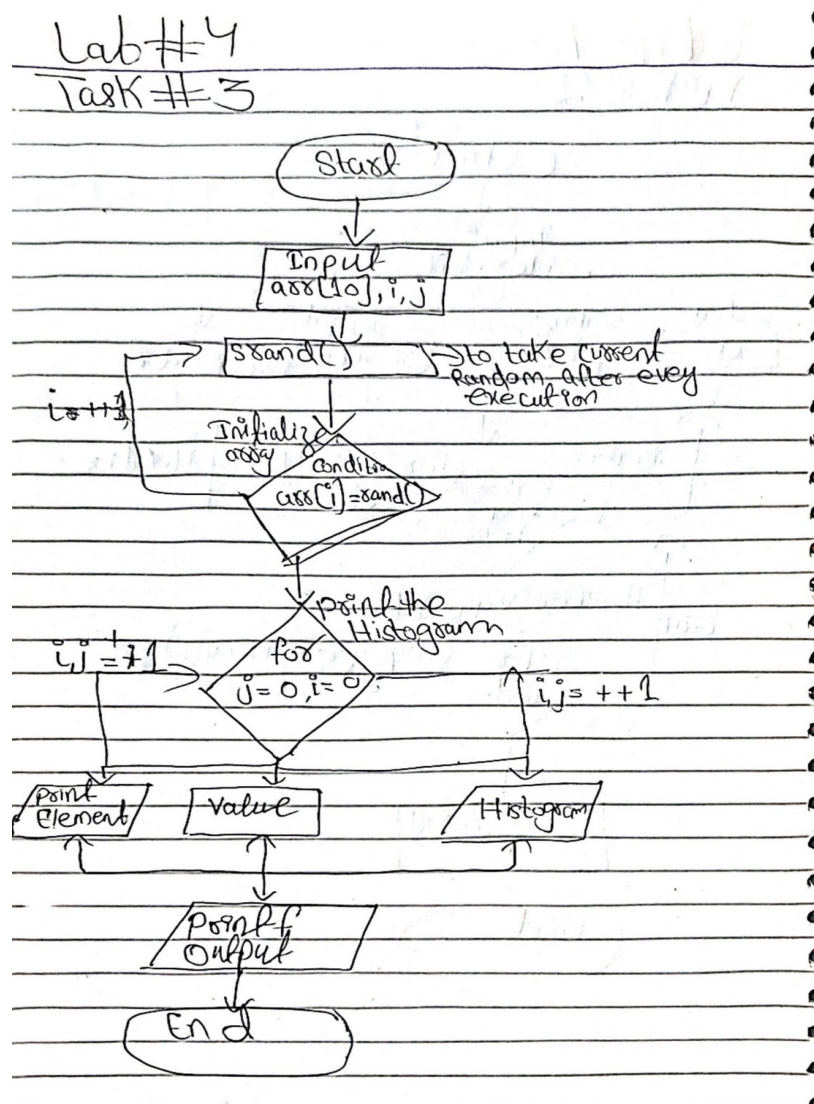 Lab #4
Task #3
Start
Input
arr[10], i, j
srand( )
→ to take current
Random after evey
execution
Initialize
array
condition
arr[i]=rand()
print the
Histogram
for
j= 0, i= 0
i,j= ++1
print
Element
Value
Histogram
printf
Output
End